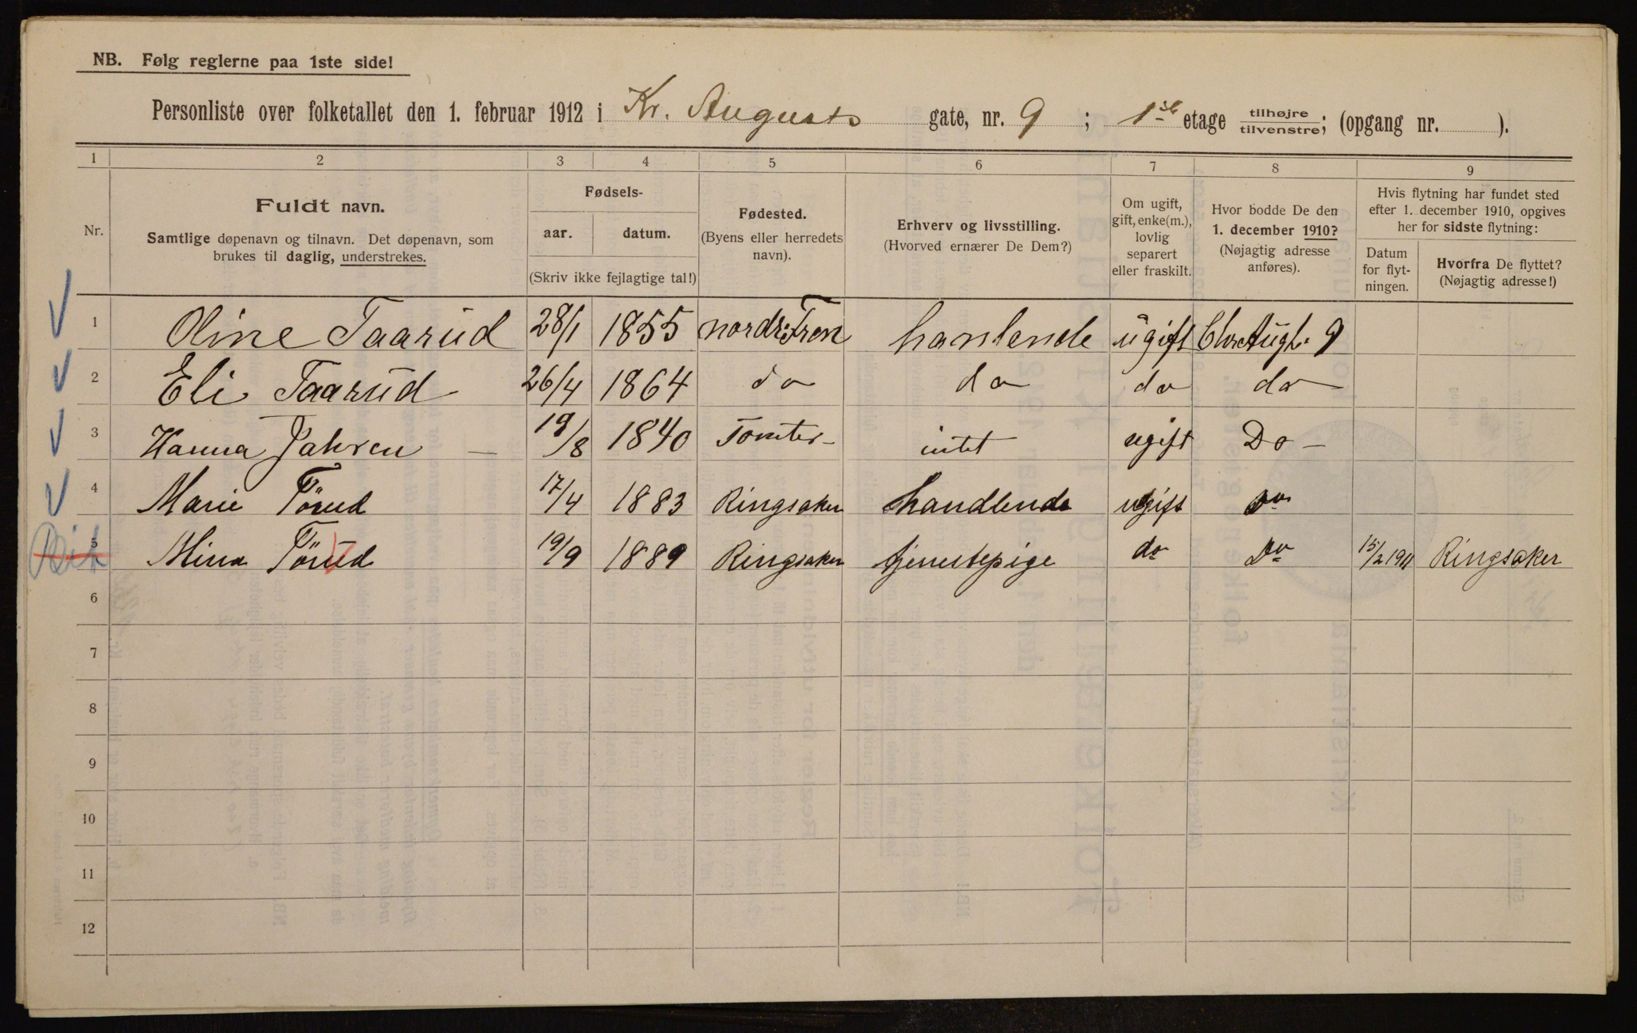 NB. Følg reglerne paa 1ste side!
Personliste over folketallet den 1. februar 1912 i Kr. Augusts gate, nr. 9 ; 1ste etage tilhøjre tilvenstre; (opgang nr. ).
1 2 3 4 5 6 7 8 9
Nr.
Fuldt navn.
Samtlige døpenavn og tilnavn. Det døpenavn, som
brukes til daglig, understrekes.
Fødsels-
aar. datum.
(Skriv ikke fejlagtige tal!)
Fødested.
(Byens eller herredets
navn).
Erhverv og livsstilling.
(Hvorved ernærer De Dem?)
Om ugift,
gift, enke(m.),
lovlig
separert
eller fraskilt.
Hvor bodde De den
1. december 1910?
(Nøjagtig adresse
anføres).
Hvis flytning har fundet sted
efter 1. december 1910, opgives
her for sidste flytning:
Datum
for flyt-
ningen.
Hvorfra De flyttet?
(Nøjagtig adresse!)
1 Oline Taarud 28/1 1855 nordr. Fron hanlende ugift Chr Augt. 9
2 Eli Taarud 26/4 1864 do do do do
3 Hanna Jahren — 19/8 1840 Tomter intet ugift Do —
4 Marie Törud 17/4 1883 Ringsaker handlende ugift Do
5 Mina Törud 19/9 1889 Ringsaker tjenestepige do Do 15/2 1911 Ringsaker
6
7
8
9
10
11
12